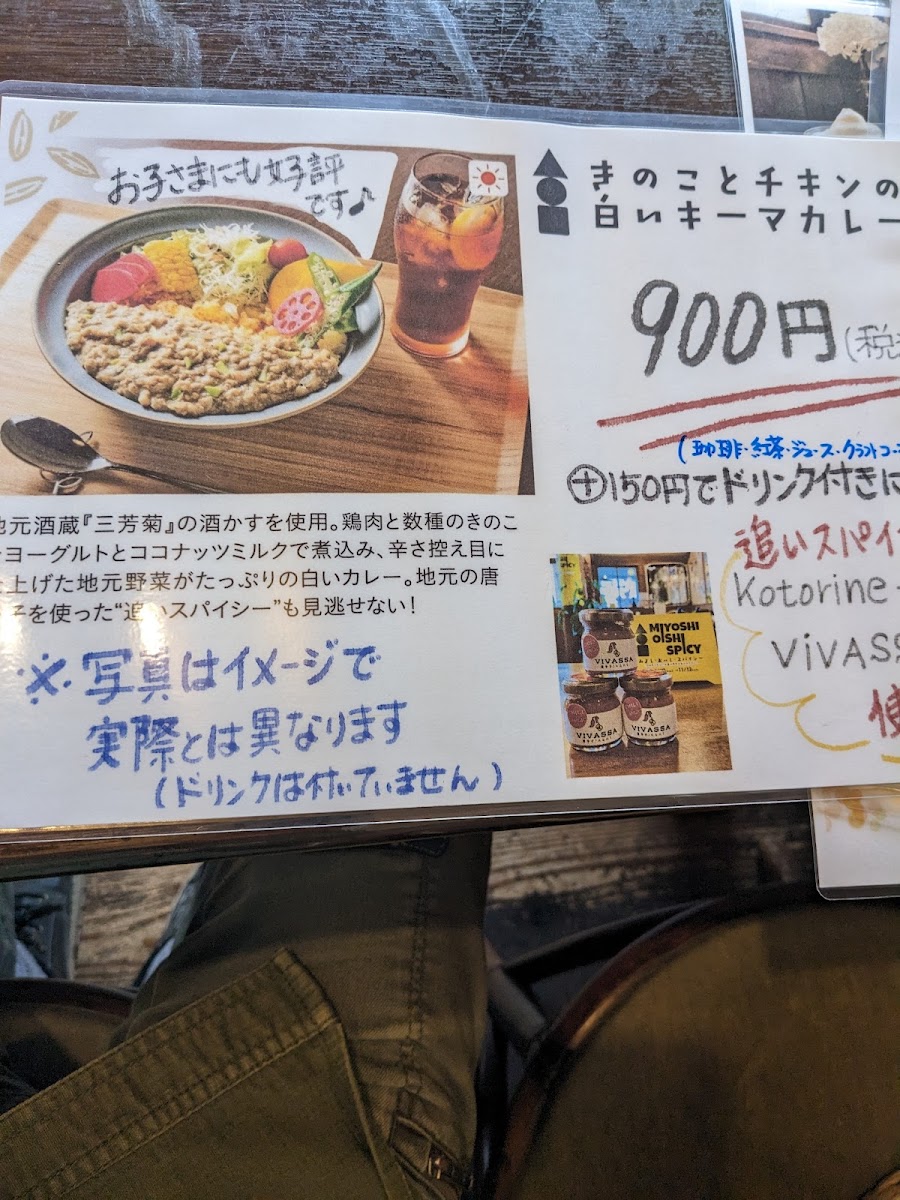 お子さまにも好評
です♪
きのことチキンの
白いキーマカレー
900円(税
(珈琲・紅茶・ジュース・クラフトコー
⊕150円でドリンク付きに
地元酒蔵『三芳菊』の酒かすを使用。鶏肉と数種のきのこ
ヨーグルトとココナッツミルクで煮込み、辛さ控え目に
上げた地元野菜がたっぷりの白いカレー。地元の唐
子を使った“追いスパイシー”も見逃せない!
※写真はイメージで
実際とは異なります
(ドリンクは付いていません)
追いスパイ
Kotorine
ViVASS
使
MIYOSHI
OISHI
SPICY
みよし・おいし・スパイシー
VIVASSA
VIVASSA
VIVASSA